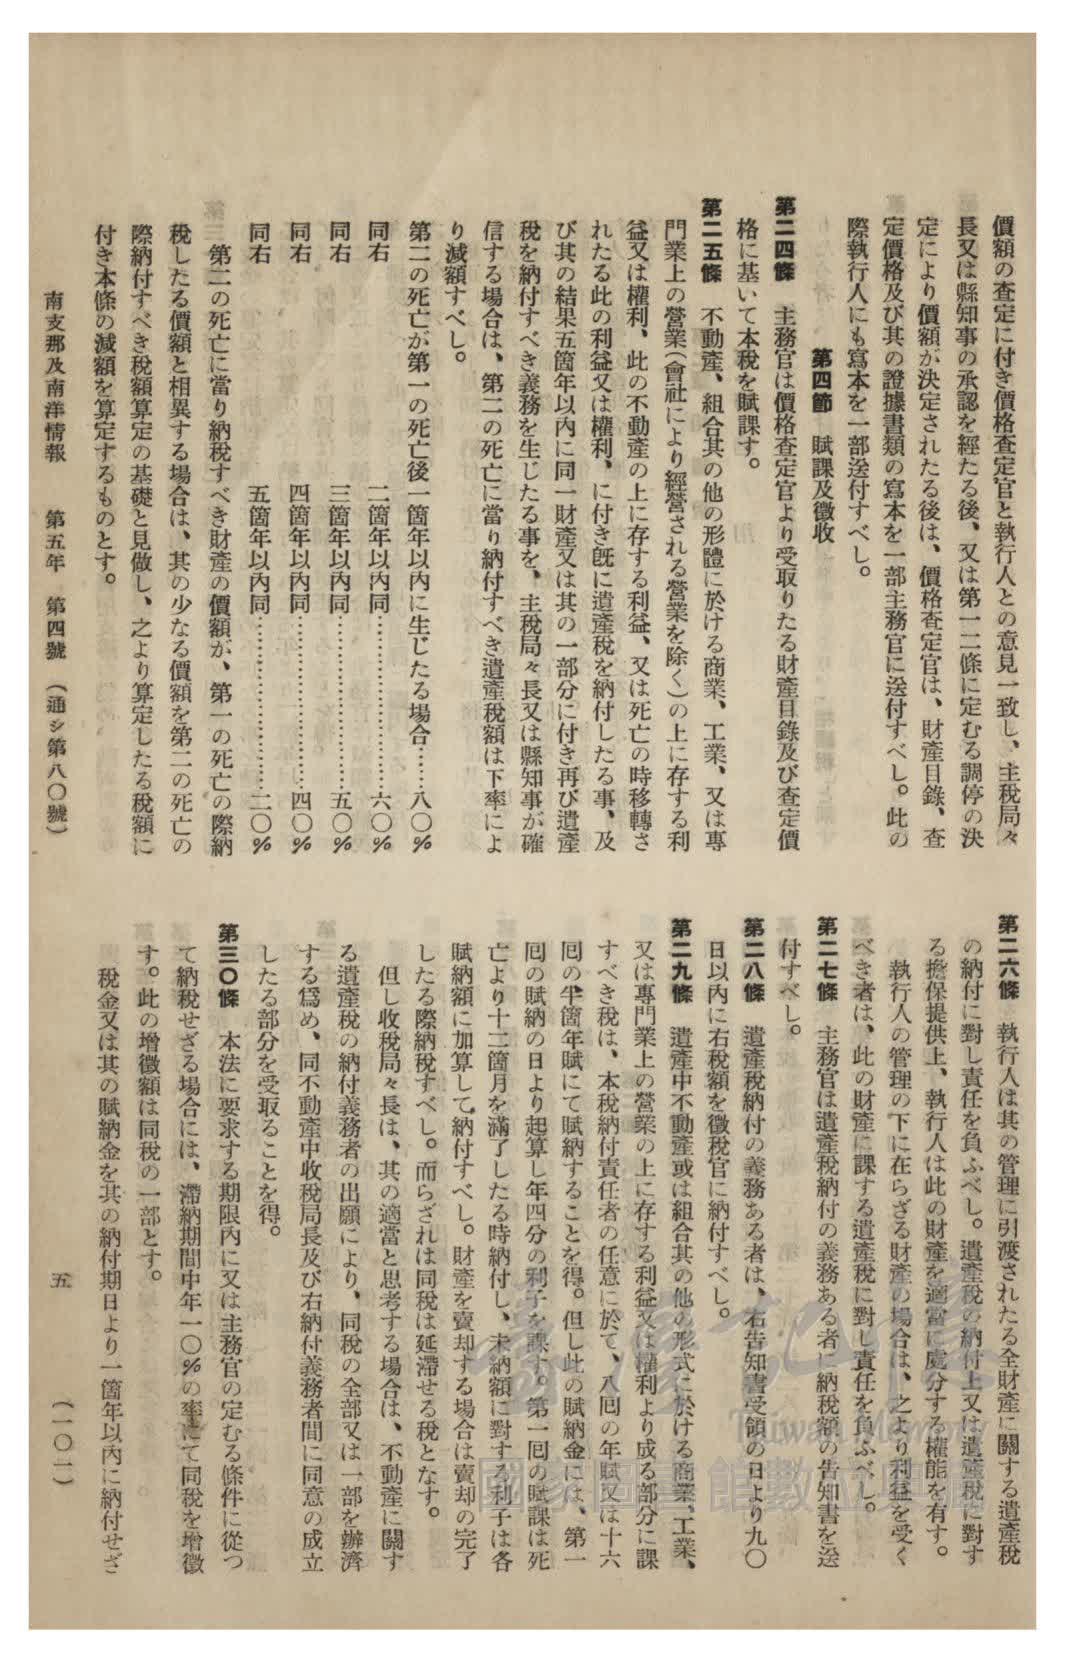 價額の査定に付き價格査定官と執行人との意見一致し、主税局々
長又は縣知事の承認を經たる後、又は第一二條に定むる調停の決
定により價額が決定されたる後は、價格査定官は、財產目錄、査
定價格及び其の證據書類の寫本を一部主務官に送付すべし。此の
際執行人にも寫本を一部送付すべし。
第四節　賦課及徵收
第二四條　主務官は價格査定官より受取りたる財產目錄及び査定價
格に基いて本税を賦課す。
第二五條　不動產、組合其の他の形體に於ける商業、工業、又は專
門業上の營業(會社により經營される營業を除く)の上に存する利
益又は權利、此の不動產の上に存する利益、又は死亡の時移轉さ
れたる此の利益又は權利、に付き旣に遺產税を納付したる事、及
び其の結果五箇年以內に同一財產又は其の一部分に付き再び遺產
税を納付すべき義務を生じたる事を、主税局々長又は縣知事が確
信する場合は、第二の死亡に當り納付すべき遺產税額は下率によ
り減額すべし。
第二の死亡が第一の死亡後一箇年以內に生じたる場合……八〇%
同右　二箇年以內同…………………六〇%
同右　三箇年以內同…………………五〇%
同右　四箇年以內同…………………四〇%
同右　五箇年以內同…………………二〇%
第二の死亡に當り納税すべき財產の價額が、第一の死亡の際納
税したる價額と相異する場合は、其の少なる價額を第二の死亡の
際納付すべき税額算定の基礎と見做し、之より算定したる税額に
付き本條の減額を算定するものとす。
南支那及南洋情報　第五年　第四號　(通シ第八〇號)
第二六條　執行人は其の管理に引渡されたる全財產に關する遺產税
の納付に對し責任を負ふべし。遺產税の納付上又は遺產税に對す
る擔保提供上、執行人は此の財產を適當に處分する權能を有す。
執行人の管理の下に在らざる財產の場合は、之より利益を受く
べき者は、此の財產に課する遺產税に對し責任を負ふべし。
第二七條　主務官は遺產税納付の義務ある者に納税額の告知書を送
付すべし。
第二八條　遺產税納付の義務ある者は、右告知書受領の日より九〇
日以內に右税額を徵税官に納付すべし。
第二九條　遺產中不動產或は組合其の他の形式に於ける商業、工業、
又は專門業上の營業の上に存する利益又は權利より成る部分に課
すべき税は、本税納付責任者の任意に於て、八囘の年賦又は十六
囘の半箇年賦にて賦納することを得。但し此の賦納金には、第一
囘の賦納の日より起算し年四分の利子を課す。第一囘の賦課は死
亡より十二箇月を滿了したる時納付し、未納額に對する利子は各
賦納額に加算して納付すべし。財產を賣却する場合は賣却の完了
したる際納税すべし。而らざれは同税は延滯せる税となす。
但し收税局々長は、其の適當と思考する場合は、不動產に關す
る遺產税の納付義務者の出願により、同税の全部又は一部を辦濟
する爲め、同不動產中收税局長及び右納付義務者間に同意の成立
したる部分を受取ることを得。
第三〇條　本法に要求する期限內に又は主務官の定むる條件に從つ
て納税せざる場合には、滯納期間中年一〇%の率にて同税を增徵
す。此の增徵額は同税の一部とす。
税金又は其の賦納金を其の納付期日より一箇年以內に納付せざ
五　(一〇一)
臺灣記憶
Taiwan Memory
國家圖書館數位典藏